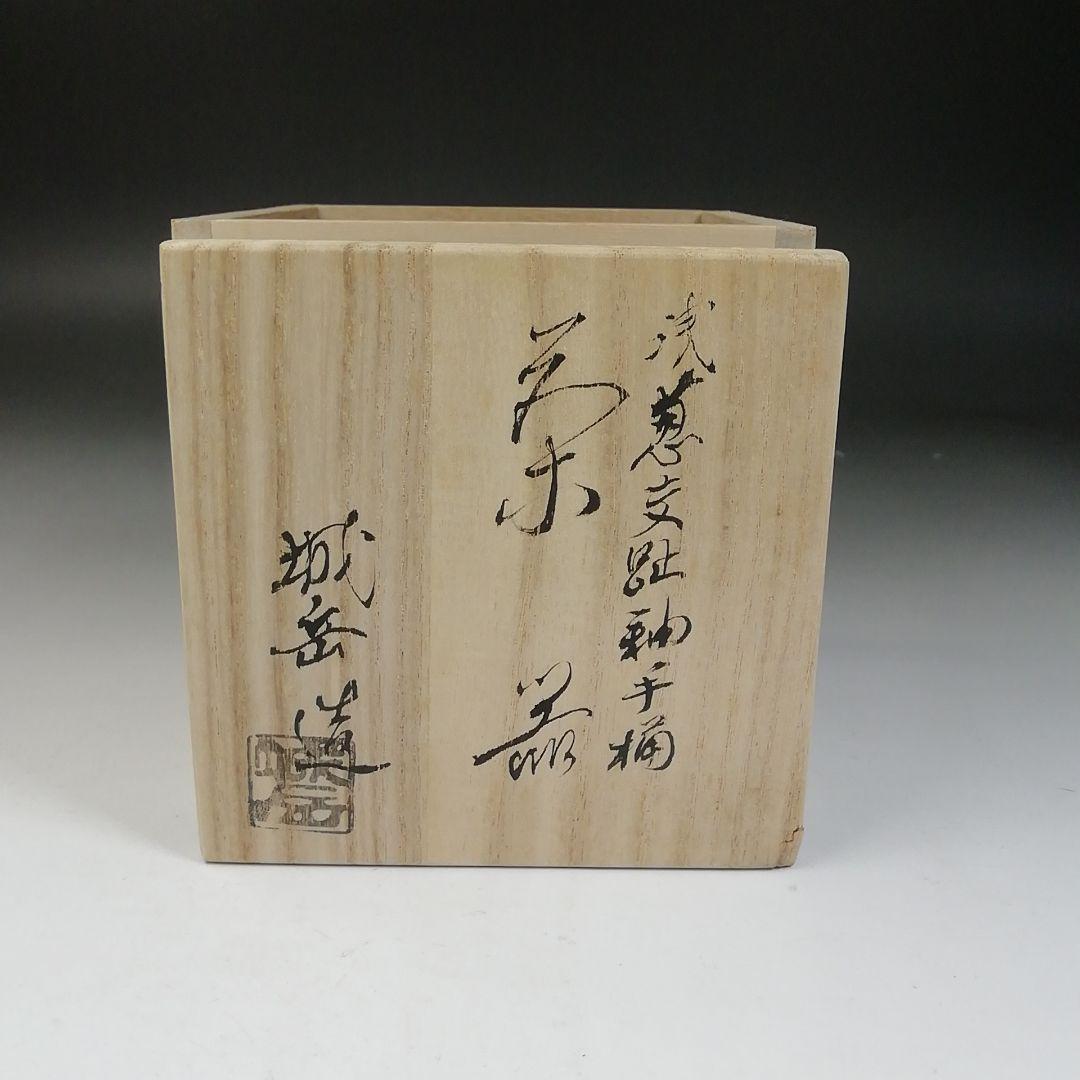 浅葱交趾釉手桶
茶器
城岳造